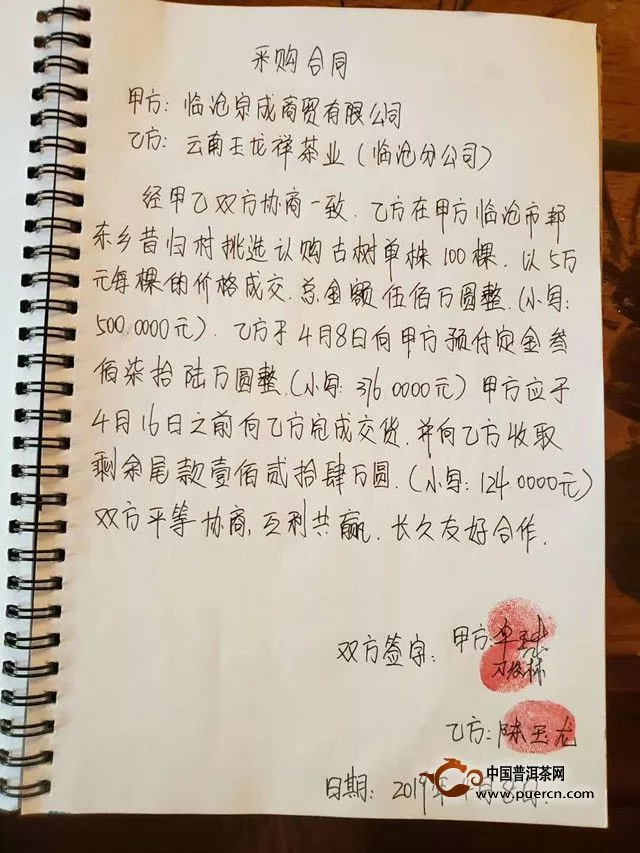 采购合同
甲方：临沧宗成商贸有限公司
乙方：云南玉龙祥茶业（临沧分公司）
经甲乙双方协商一致．乙方在甲方临沧市邦
东乡昔归村挑选认购古树单株100棵．以5万
元每棵的价格成交．总金额伍佰万圆整．(小写：
500.0000元)．乙方于4月8日向甲方预付定金叁
佰柒拾陆万圆整．(小写：376.0000元)甲方应于
4月16日之前向乙方完成交货．并向乙方收取
剩余尾款壹佰贰拾肆万圆．(小写：124.0000元)
双方平等协商，互利共赢．长久友好合作．
双方签字：甲方：
乙方：陈玉龙
日期：2019年4月8日．
中国普洱茶网
www.puercn.com